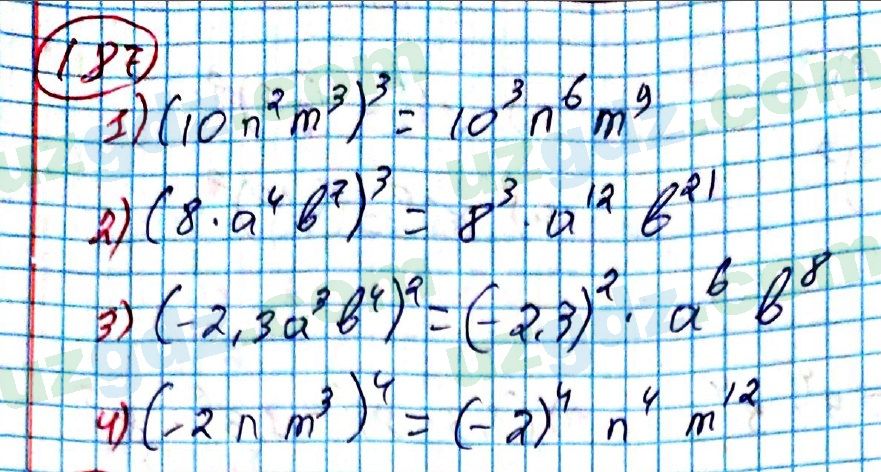 187
1) (10 n² m³)³ = 10³ n⁶ m⁹
2) (8 · a⁴ b⁷)³ = 8³ · a¹² b²¹
3) (-2,3 a³ b⁴)² = (-2,3)² · a⁶ b⁸
4) (-2 n m³)⁴ = (-2)⁴ n⁴ m¹²
uzgdz.com